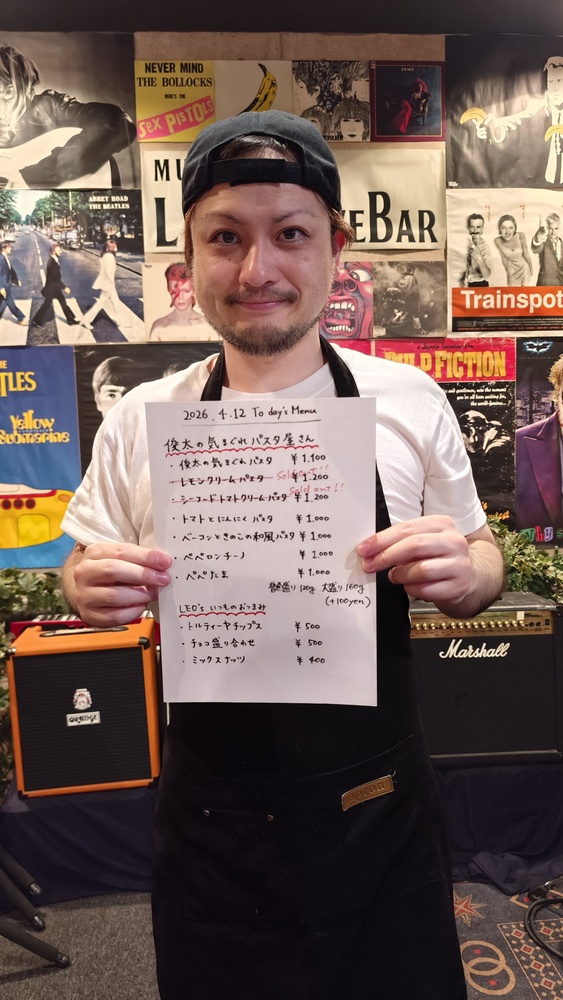 NEVER MIND
THE BOLLOCKS
HERE'S THE
SEX PISTOLS
ABBEY ROAD
THE BEATLES
MU
L
EBAR
Trainspot
PULP FICTION
TLES
Yellow
Submarine
2026. 4.12 To day's Menu
俊太の気まぐれパスタ屋さん
・俊太の気まぐれパスタ ¥1,100
・レモンクリームパスタ ¥1,200 Sold out!!
・シーフードトマトクリームパスタ ¥1,200 Sold out!!
・トマトとにんにくパスタ ¥1,000
・ベーコンときのこの和風パスタ ¥1,000
・ペペロンチーノ ¥1,000
・ペペたま ¥1,000
普通盛り120g 大盛り160g
(+100yen)
LEO's いつものおつまみ
・トルティーヤチップス ¥500
・チョコ盛り合わせ ¥500
・ミックスナッツ ¥400
ORANGE
Marshall